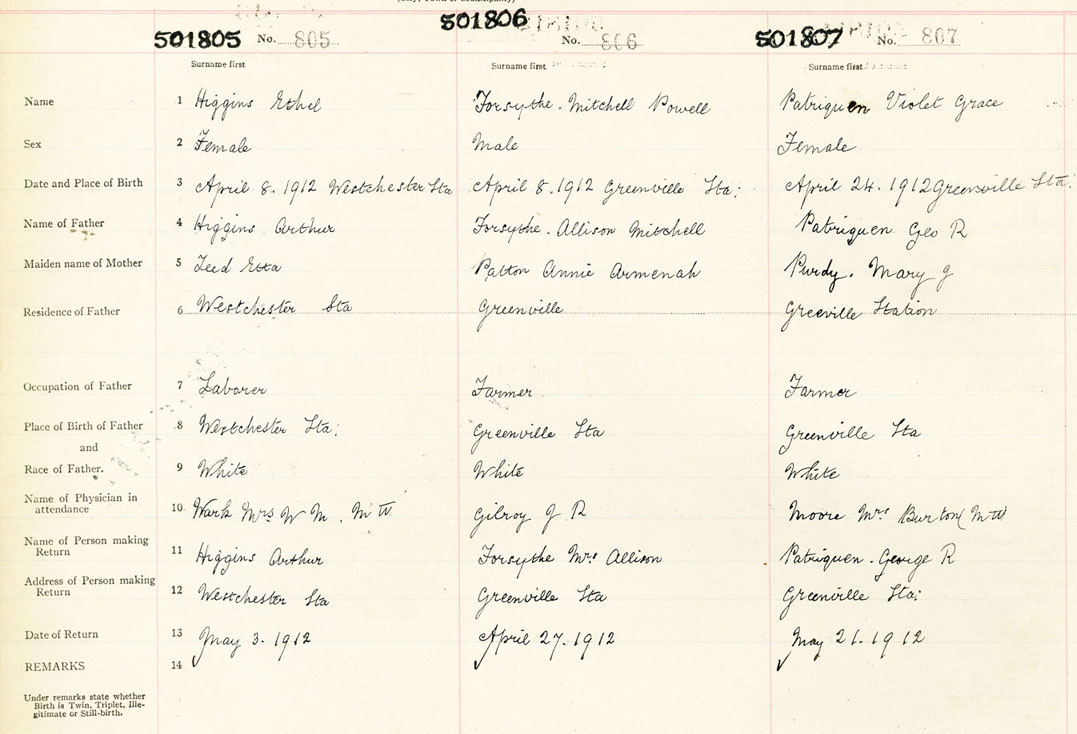 501805 No. 805 501806 No. 806 501807 No. 807
Surname first Surname first Surname first
Name 1 Higgins Ethel Forsythe. Mitchell Powell Patriquen Violet Grace
Sex 2 Female Male Female
Date and Place of Birth 3 April 8. 1912 Westchester Sta April 8. 1912 Greenville Sta: April 24. 1912 Greenville Sta.
Name of Father 4 Higgins Arthur Forsythe. Allison Mitchell Patriquen Geo R
Maiden name of Mother 5 Teed Etta Patton Annie Armenah Purdy. Mary J
Residence of Father 6 Westchester Sta Greenville Greeville Station
Occupation of Father 7 Laborer Farmer Farmer
Place of Birth of Father 8 Westchester Sta: Greenville Sta Greenville Sta
and
Race of Father. 9 White White White
Name of Physician in
attendance 10 Wark Mrs W M. MW Gilroy J R Moore Mrs Burton (MW)
Name of Person making
Return 11 Higgins Arthur Forsythe Mrs Allison Patriquen. George R
Address of Person making
Return 12 Westchester Sta Greenville Sta Greenville Sta:
Date of Return 13 May 3. 1912 April 27. 1912 May 21. 1912
REMARKS 14
Under remarks state whether
Birth is Twin, Triplet, Ille-
gitimate or Still-birth.